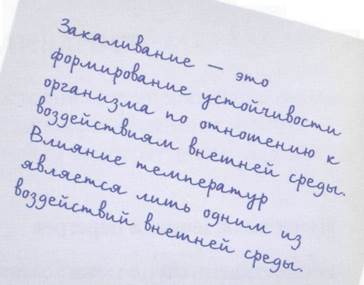 Закаливание — это
формирование устойчивости
организма по отношению к
воздействиям внешней среды.
Влияние температур
является лишь одним из
воздействий внешней среды.